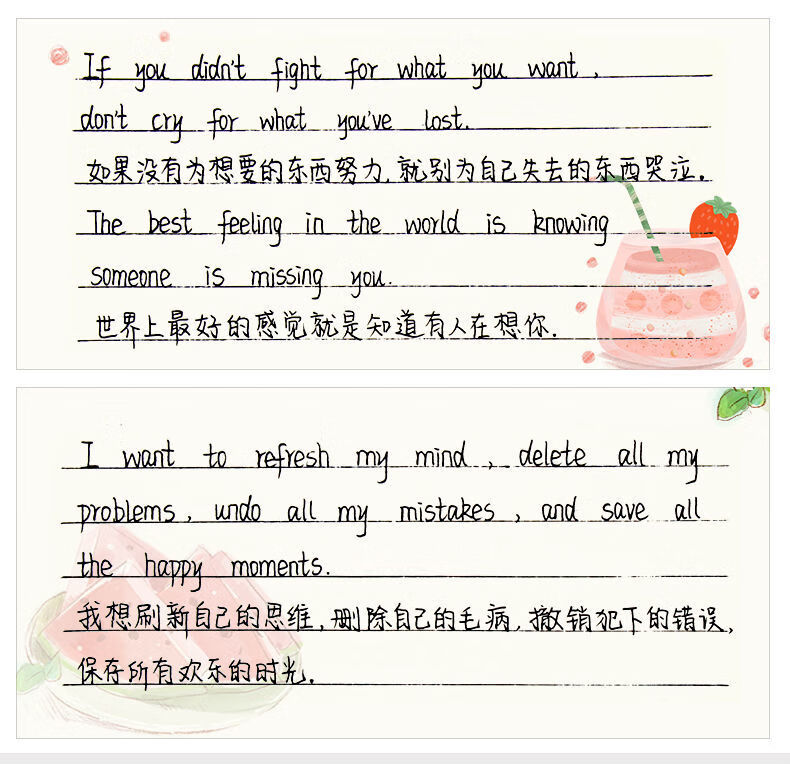 If you didn't fight for what you want,
don't cry for what you've lost.
如果没有为想要的东西努力,就别为自己失去的东西哭泣.
The best feeling in the world is knowing
someone is missing you.
世界上最好的感觉就是知道有人在想你.
I want to refresh my mind, delete all my
problems, undo all my mistakes, and save all
the happy moments.
我想刷新自己的思维,删除自己的毛病,撤销犯下的错误,
保存所有欢乐的时光.